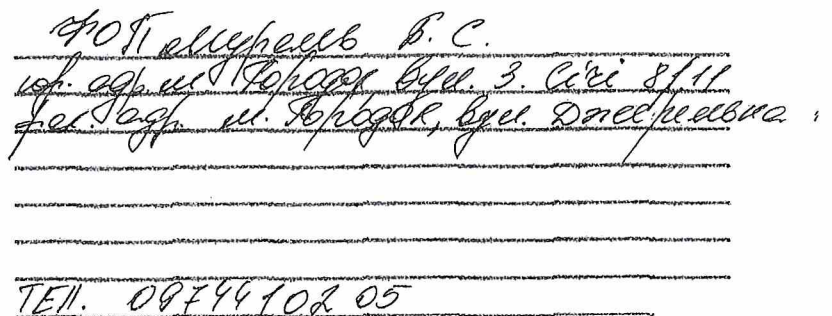 ФОП Журавль Б. С.
юр. адр. м. Городок вул. З. Січі 8/11
фак. адр. м. Городок, вул. Джерельна.
ТЕЛ. 0974410205